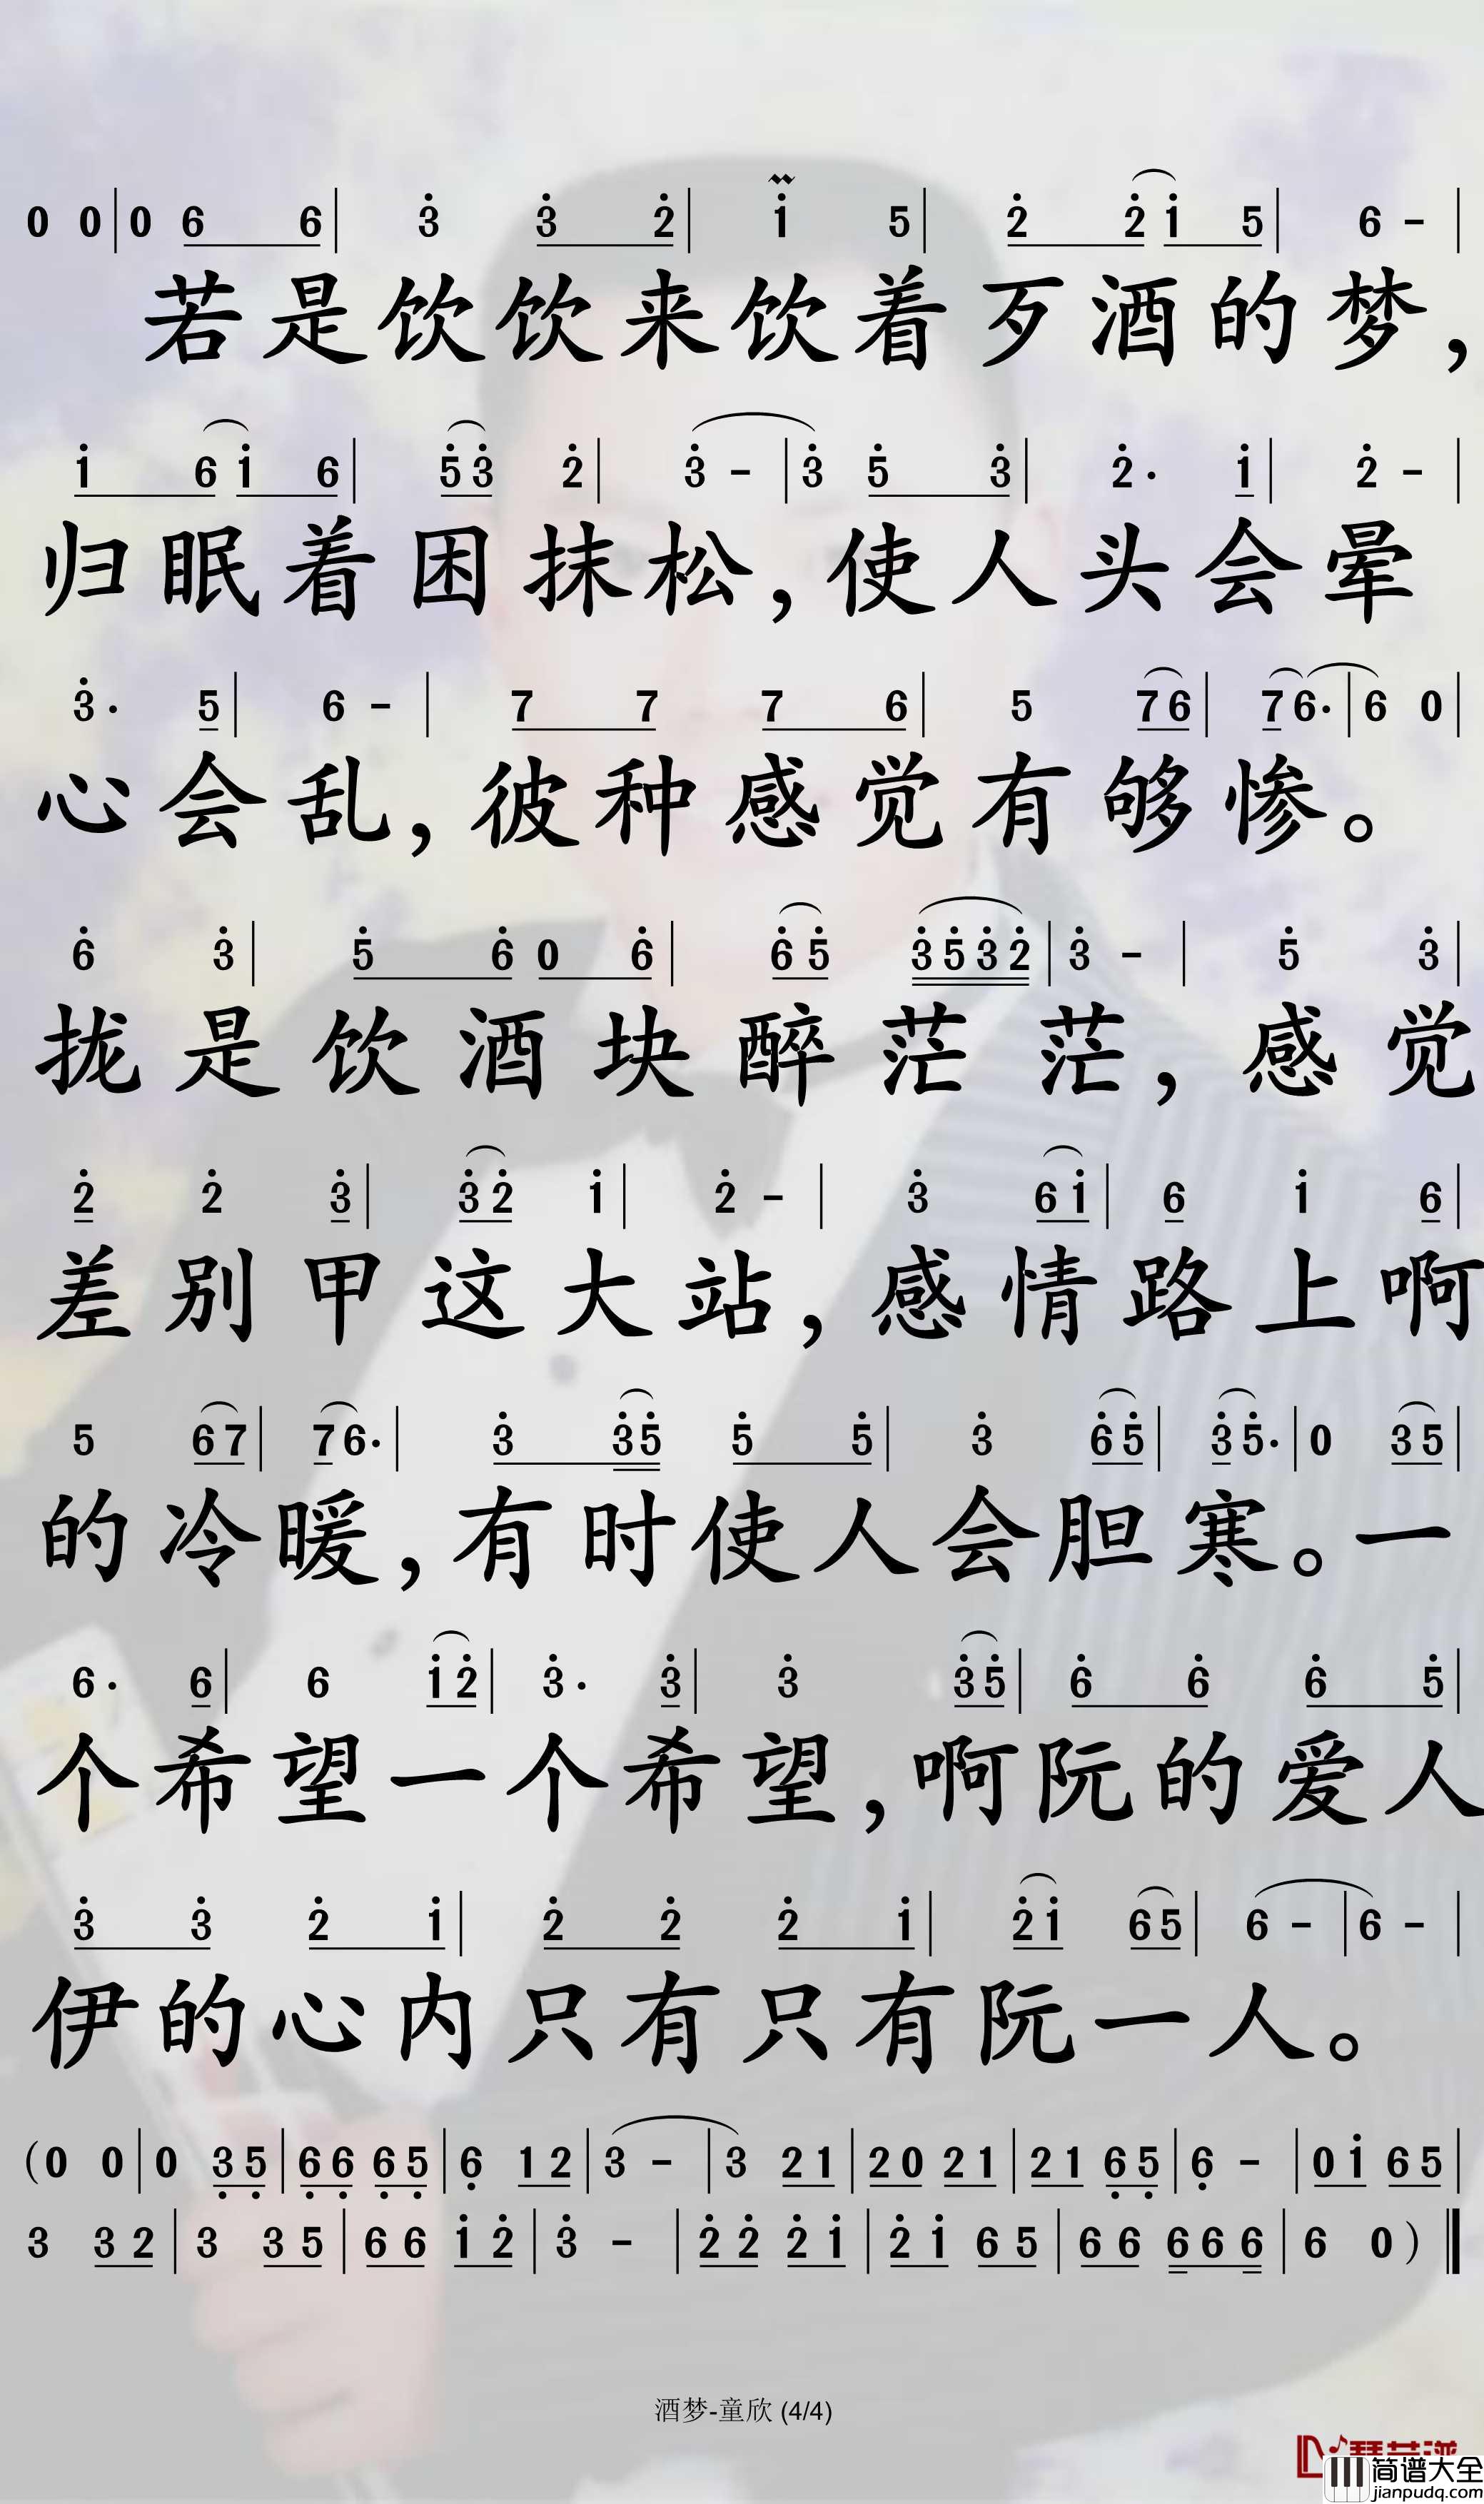 0 0 | 0 6 6 | 3 3 2 | 1 5 | 2 2 1 5 | 6 - |
若是饮饮来饮着歹酒的梦，
1 6 1 6 | 5 3 2 | 3 - | 3 5 3 | 2· 1 | 2 - |
归眠着困抹松，使人头会晕
3· 5 | 6 - | 7 7 7 6 | 5 7 6 | 7 6· | 6 0 |
心会乱，彼种感觉有够惨。
6 3 | 5 6 0 6 | 6 5 3 5 3 2 | 3 - | 5 3 |
拢是饮酒块醉茫茫，感觉
2 2 3 | 3 2 1 | 2 - | 3 6 1 | 6 1 6 |
差别甲这大站，感情路上啊
5 6 7 | 7 6· | 3 3 5 5 5 | 3 6 5 | 3 5· | 0 3 5 |
的冷暖，有时使人会胆寒。一
6· 6 | 6 1 2 | 3· 3 | 3 3 5 | 6 6 6 5 |
个希望一个希望，啊阮的爱人
3 3 2 1 | 2 2 2 1 | 2 1 6 5 | 6 - | 6 - |
伊的心内只有只有阮一人。
(0 0 | 0 3 5 | 6 6 6 5 | 6 1 2 | 3 - | 3 2 1 | 2 0 2 1 | 2 1 6 5 | 6 - | 0 1 6 5 |
3 3 2 | 3 3 5 | 6 6 1 2 | 3 - | 2 2 2 1 | 2 1 6 5 | 6 6 6 6 6 | 6 0 )
酒梦-童欣 (4/4)
简谱大全
jianpudq.com